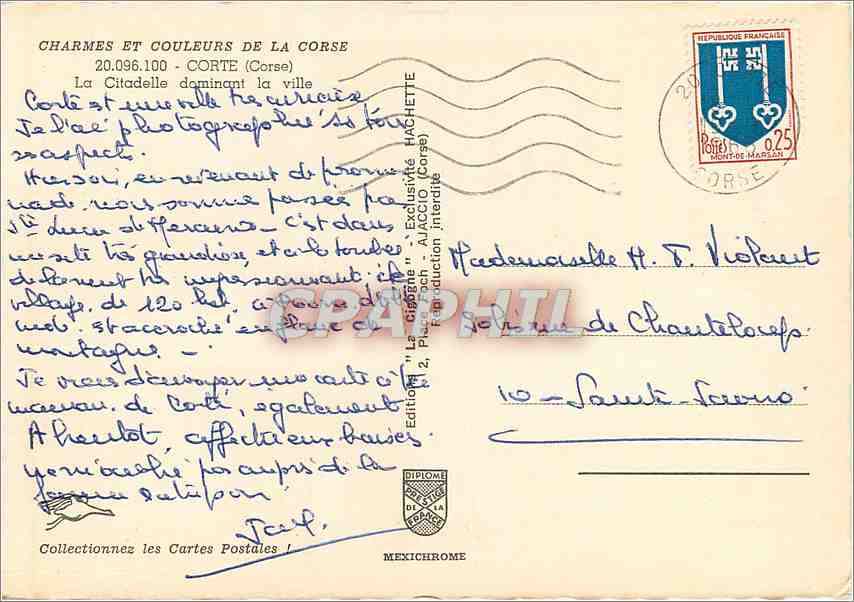 CHARMES ET COULEURS DE LA CORSE
20.096.100 - CORTE (Corse)
La Citadelle dominant la ville
Corte est une ville très curieuse
Je l'ai photographiée ss tous
ses aspects.
Hier soir, en revenant de prome
nade, nous sommes passés par
Ste Lucie de Mercurio - C'est dans
un site très grandiose, et à la tombée
de la nuit très impressionnant, ce
village de 120 hab, à
et accroché en flanc de
montagne -
Je viens d'envoyer une carte à
maman de Corte, également
A bientôt, affectueux baisers.
pas auprès de la
Collectionnez les Cartes Postales !
Editions "La Cigogne" - Exclusivité HACHETTE
2, Place Foch - AJACCIO (Corse)
Reproduction interdite
CPAPHIL
DIPLOME
PRESTIGE
DE LA
FRANCE
MEXICHROME
REPUBLIQUE FRANÇAISE
Postes 0,25
MONT-DE-MARSAN
20
CORSE
Mademoiselle H. T. Violant
de Chanteloup
10 - Sainte-Savine